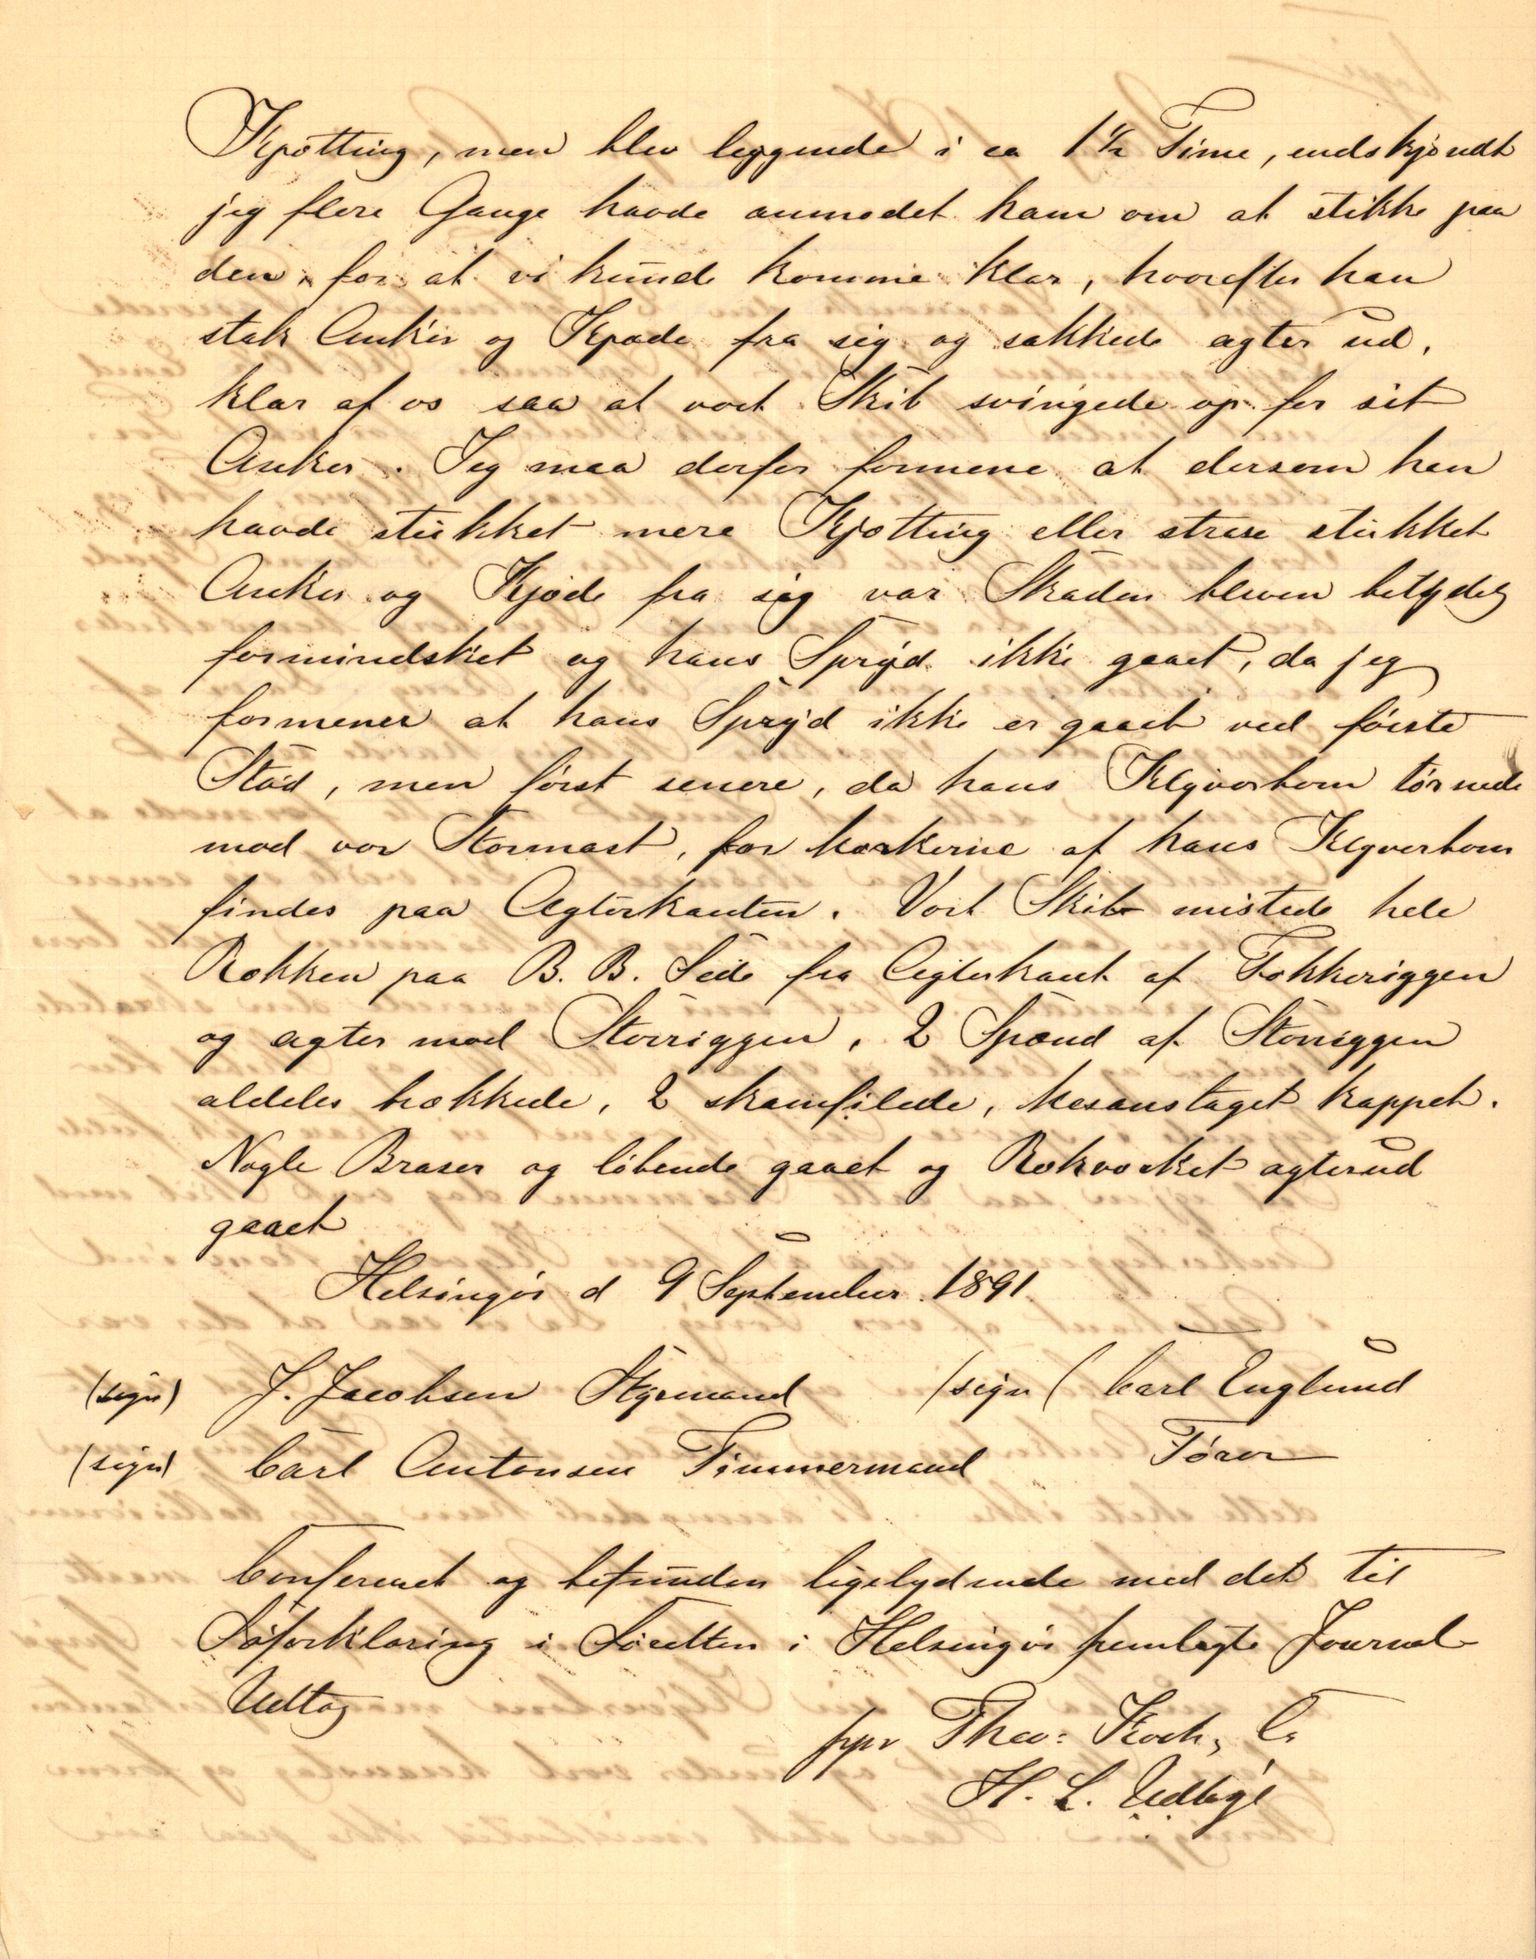 Kjøtting, men blev leggende i ca 1½ Time, endskjøndt
jeg flere Gange havde anmodet ham om at stikke paa
den, for at vi kunde komme klar, hvorefter han
stak Anker og Kjæde fra sig og sakkede agter ud,
klar af os saa at vort Skib svingede op for sit
Anker. Jeg maa derfor formene at dersom han
havde stukket mere Kjøtting eller strax stukket
Anker og Kjæde fra sig var Skaden bleven betydelig
formindsket og hans Spryd ikke gaaet, da jeg
formener at hans Spryd ikke er gaaet ved første
Stød, men først senere, da hans Klyverbom tørnede
mod vor Stormast, for Mærkerne af hans Klyverbom
findes paa Agterkanten. Vort Skib mistede hele
Rækken paa B. B. Side fra Agterkant af Fokkeriggen
og agter mod Storriggen, 2 Spænd af Storriggen
aldeles brækkede, 2 skamfilede, Mesanstaget kappet.
Nogle Braser og løbende gaaet og Rækværket agterud
gaaet
Helsingør d 9 September 1891
(sign) J. Jacobsen Styrmand (sign) Carl Englund
(sign) Carl Antonsen Timmermand Fører
Confereret og befunden ligelydende med det til
Søforklaring i Søretten i Helsingør fremlagte Journal-
Udtog
ppr Theo: Koch & Co
H. L.